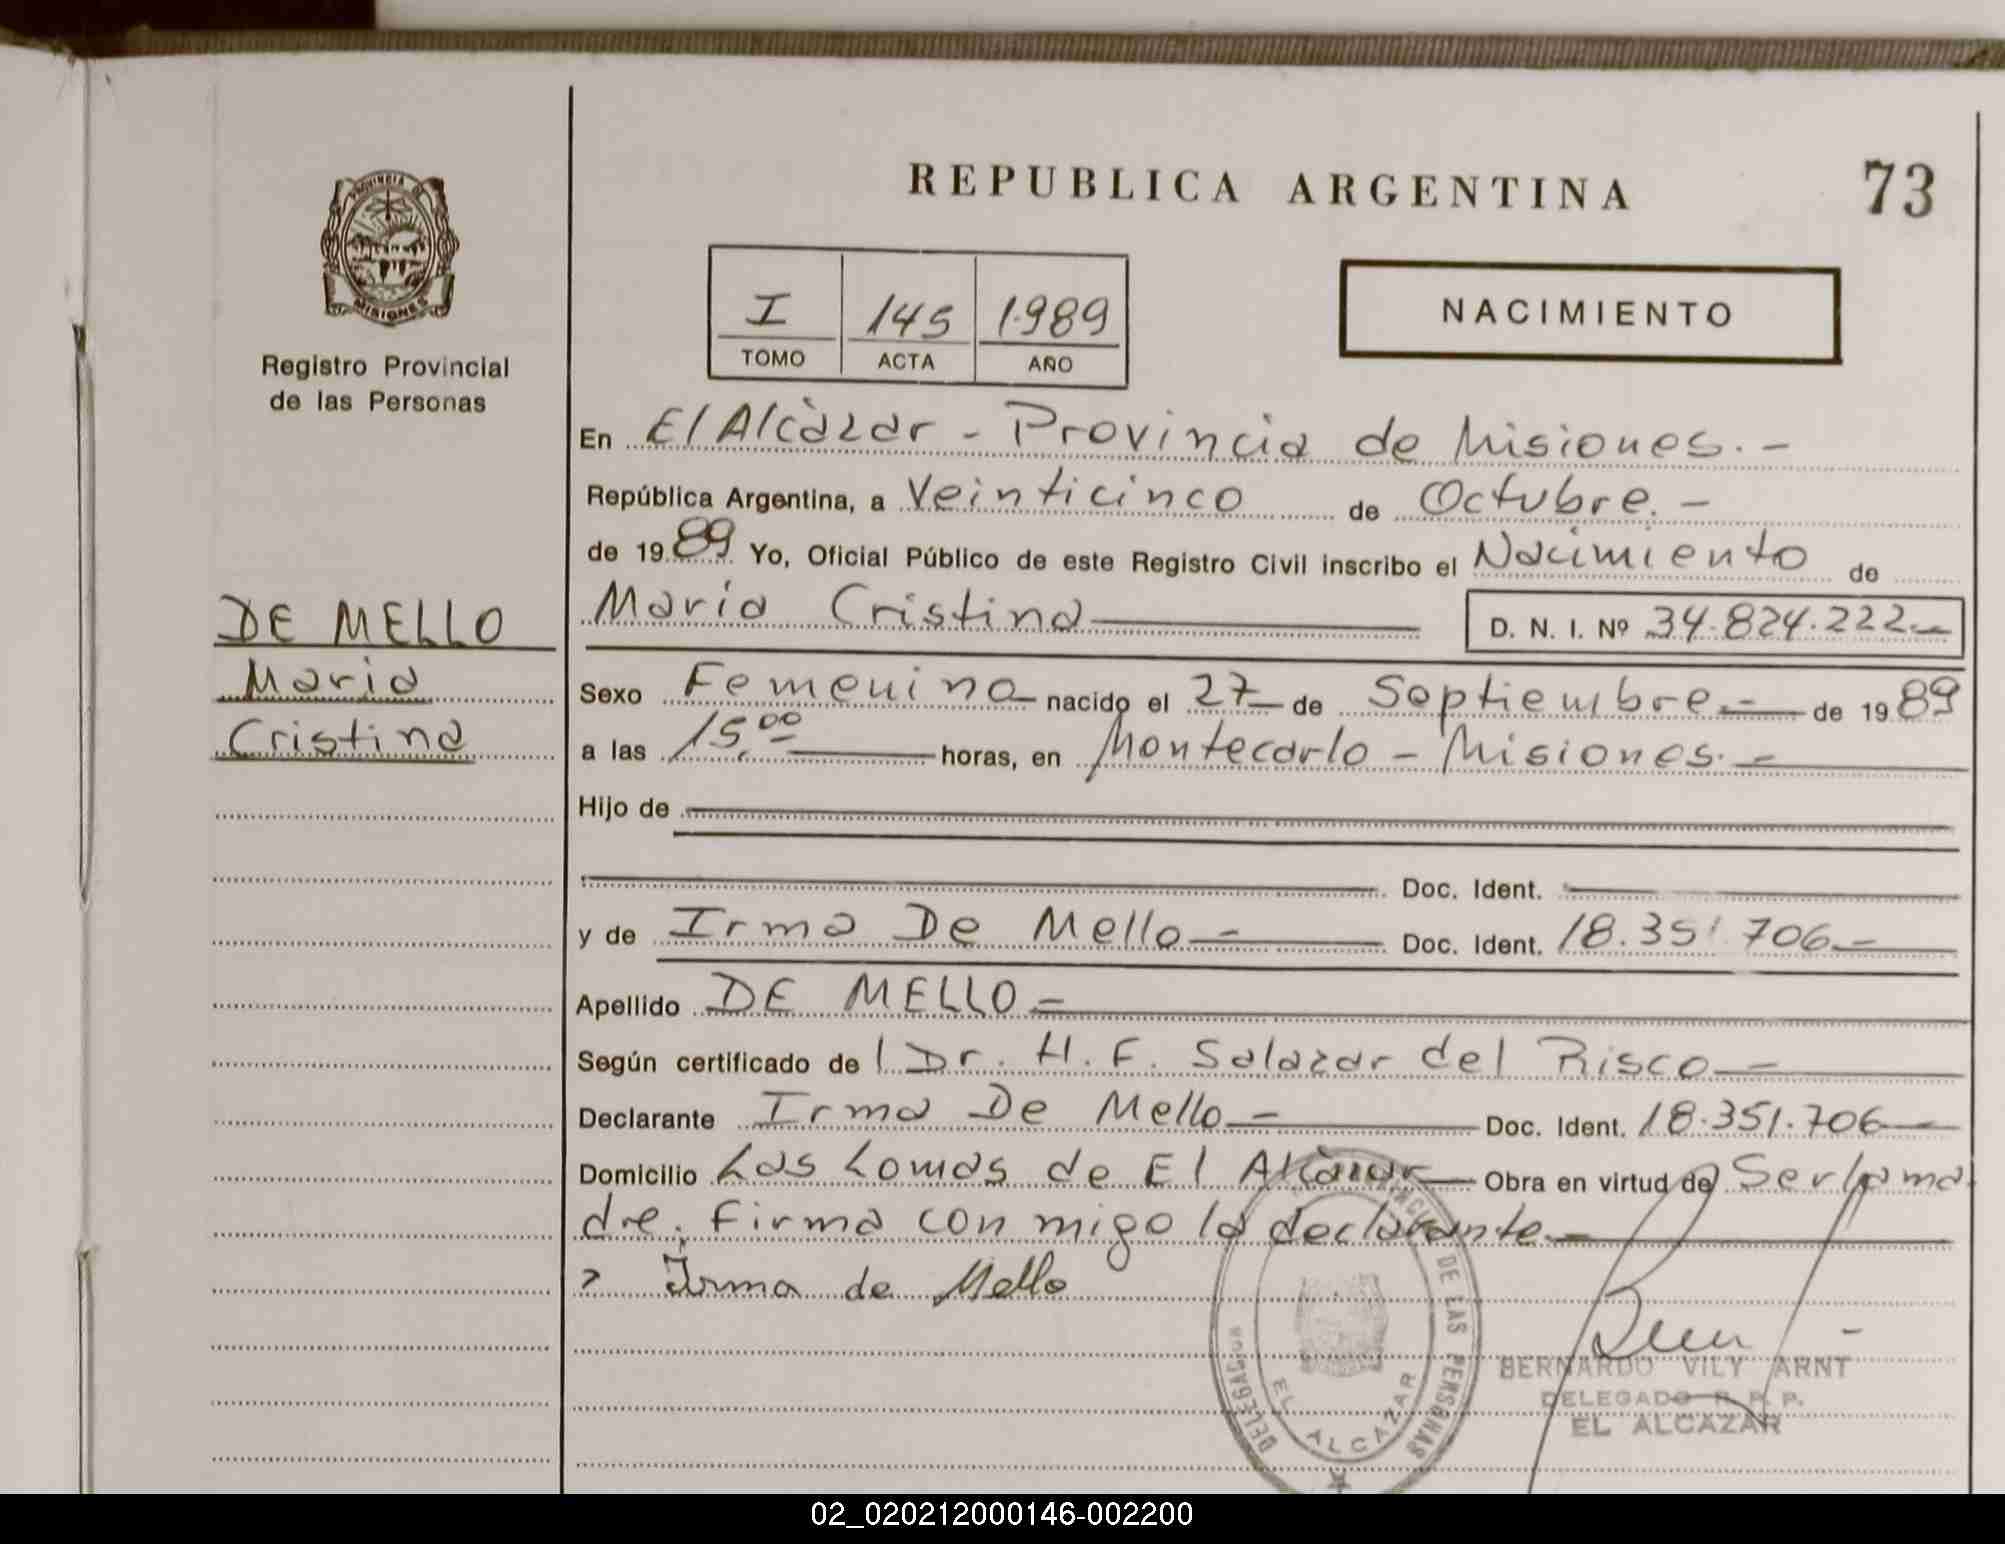 REPUBLICA ARGENTINA 73
PROVINCIA DE MISIONES
Registro Provincial
de las Personas
I 145 1989
TOMO ACTA AÑO
NACIMIENTO
En El Alcàzar - Provincia de Misiones.-
República Argentina, a Veinticinco de Octubre.-
de 1989 Yo, Oficial Público de este Registro Civil inscribo el Nacimiento de
María Cristina D. N. I. Nº 34.824.222-
DE MELLO
María
Cristina
Sexo Femenino nacido el 27 de Septiembre - de 1989
a las 15,00 horas, en Montecarlo - Misiones.-
Hijo de
Doc. Ident.
y de Irma De Mello - Doc. Ident. 18.351.706-
Apellido DE MELLO -
Según certificado de l Dr. H. F. Salazar del Risco -
Declarante Irma De Mello - Doc. Ident. 18.351.706-
Domicilio Las Lomas de El Alcàzar Obra en virtud de Ser la ma
dre. Firma con migo la declarante -
Irma de Mello
DELEGACION DE LAS PERSONAS
EL ALCAZAR
BERNARDO VILY ARNT
DELEGADO R. P. P.
EL ALCAZAR
02_020212000146-002200